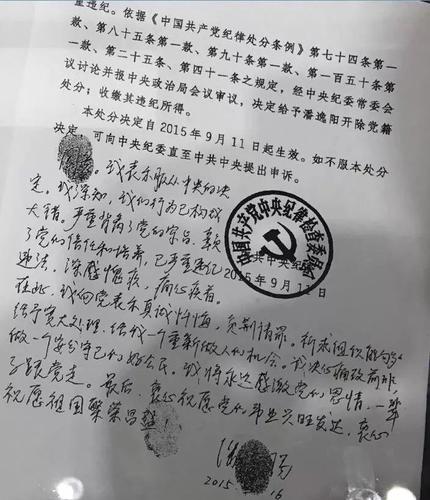 重违纪。依据《中国共产党纪律处分条例》第七十四条第一
款、第八十五条第一款、第九十条第一款、第一百五十条第
一款、第二十五条、第四十一条之规定，经中央纪委常委会
议讨论并报中央政治局会议审议，决定给予潘逸阳开除党籍
处分；收缴其违纪所得。
本处分决定自2015年9月11日起生效。如不服本处分
决定，可向中央纪委直至中共中央提出申诉。
我表示服从中央的决
定。我深知，我们行为已构成
大错。严重背离了党的宗旨，辜负
了党的信任和培养，已严重违纪
违法，深感愧疚，痛心疾首。
在此，我向党表示真诚忏悔，负荆请罪。祈求组织能够
给予宽大处理，给我一个重新做人的机会。我决心痛改前非
做一个安分守己的好公民。我将永远感激党的恩情，一辈
子跟党走。最后，衷心祝愿党的事业兴旺发达，衷心
祝愿祖国繁荣昌盛
中国共产党中央纪律检查委员会
共中央纪
2015年9月11日
2015
16